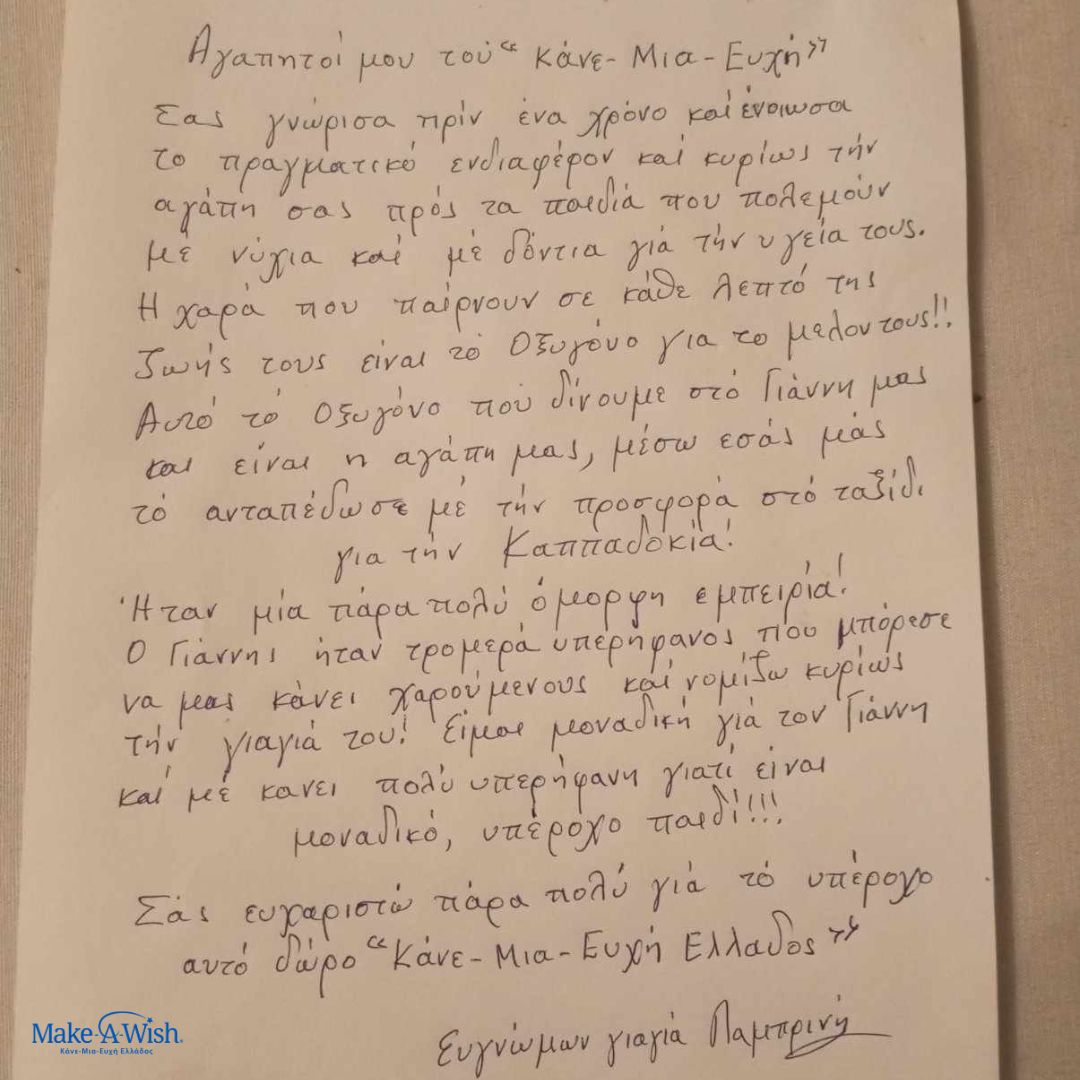 Αγαπητοί μου τού "Κάνε-Μια-Ευχή"
Σας γνώρισα πρίν ένα χρόνο καί ένοιωσα
το πραγματικό ενδιαφέρον καί κυρίως τήν
αγάπη σας πρός τα παιδιά που πολεμούν
μέ νύχια καί μέ δόντια γιά τήν υγεία τους.
Η χαρά που παίρνουν σε κάθε λεπτό της
ζωής τους είναι τό Οξυγόνο για το μελον τους!!
Αυτό τό Οξυγόνο πού δίνουμε στό Γιάννη μας
και είναι η αγάπη μας, μέσω εσάς μάς
τό ανταπέδωσε μέ τήν προσφορά στό ταξίδι
για τήν Καππαδοκία!
Ήταν μία πάρα πολύ όμορφη εμπειρία!
Ο Γιάννης ήταν τρομερά υπερήφανος που μπόρεσε
να μας κάνει χαρούμενους καί νομίζω κυρίως
τήν γιαγιά του! Είμαι μοναδική γιά τον Γιάννη
καί μέ κανει πολύ υπερήφανη γιατί είναι
μοναδικό, υπέροχο παιδί!!!
Σάς ευχαριστώ πάρα πολύ γιά τό υπέροχο
αυτό δώρο "Κάνε-Μια-Ευχή Ελλαδος"
Make-A-Wish®
Κάνε-Μια-Ευχή Ελλάδος
Ευγνώμων γιαγιά Λαμπρινή